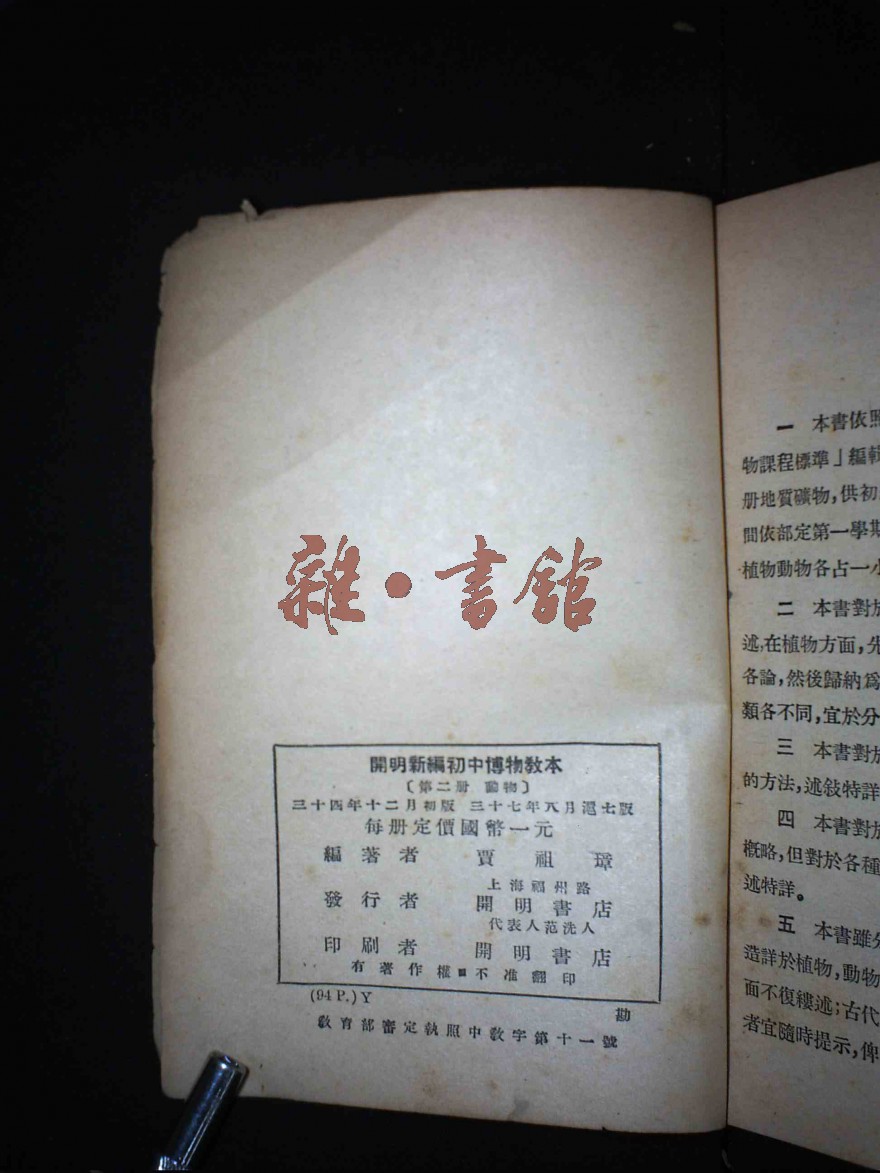 雜·書館
開明新編初中博物教本
〔第二册 動物〕
三十四年十二月初版 三十七年八月滬七版
每册定價國幣一元
編著者 賈祖璋
上海福州路
發行者 開明書店
代表人范洗人
印刷者 開明書店
有著作權■不准翻印
(94 P.) Y
勘
教育部審定執照中教字第十一號
一 本書依照
物課程標準」編輯
册地質礦物,供初
間依部定第一學期
植物動物各占一小
二 本書對於
述,在植物方面,先
各論,然後歸納爲
類各不同,宜於分
三 本書對於
的方法,述敍特詳
四 本書對於
概略,但對於各種
述特詳。
五 本書雖分
造詳於植物,動物
面不復縷述;古代
者宜隨時提示,俾